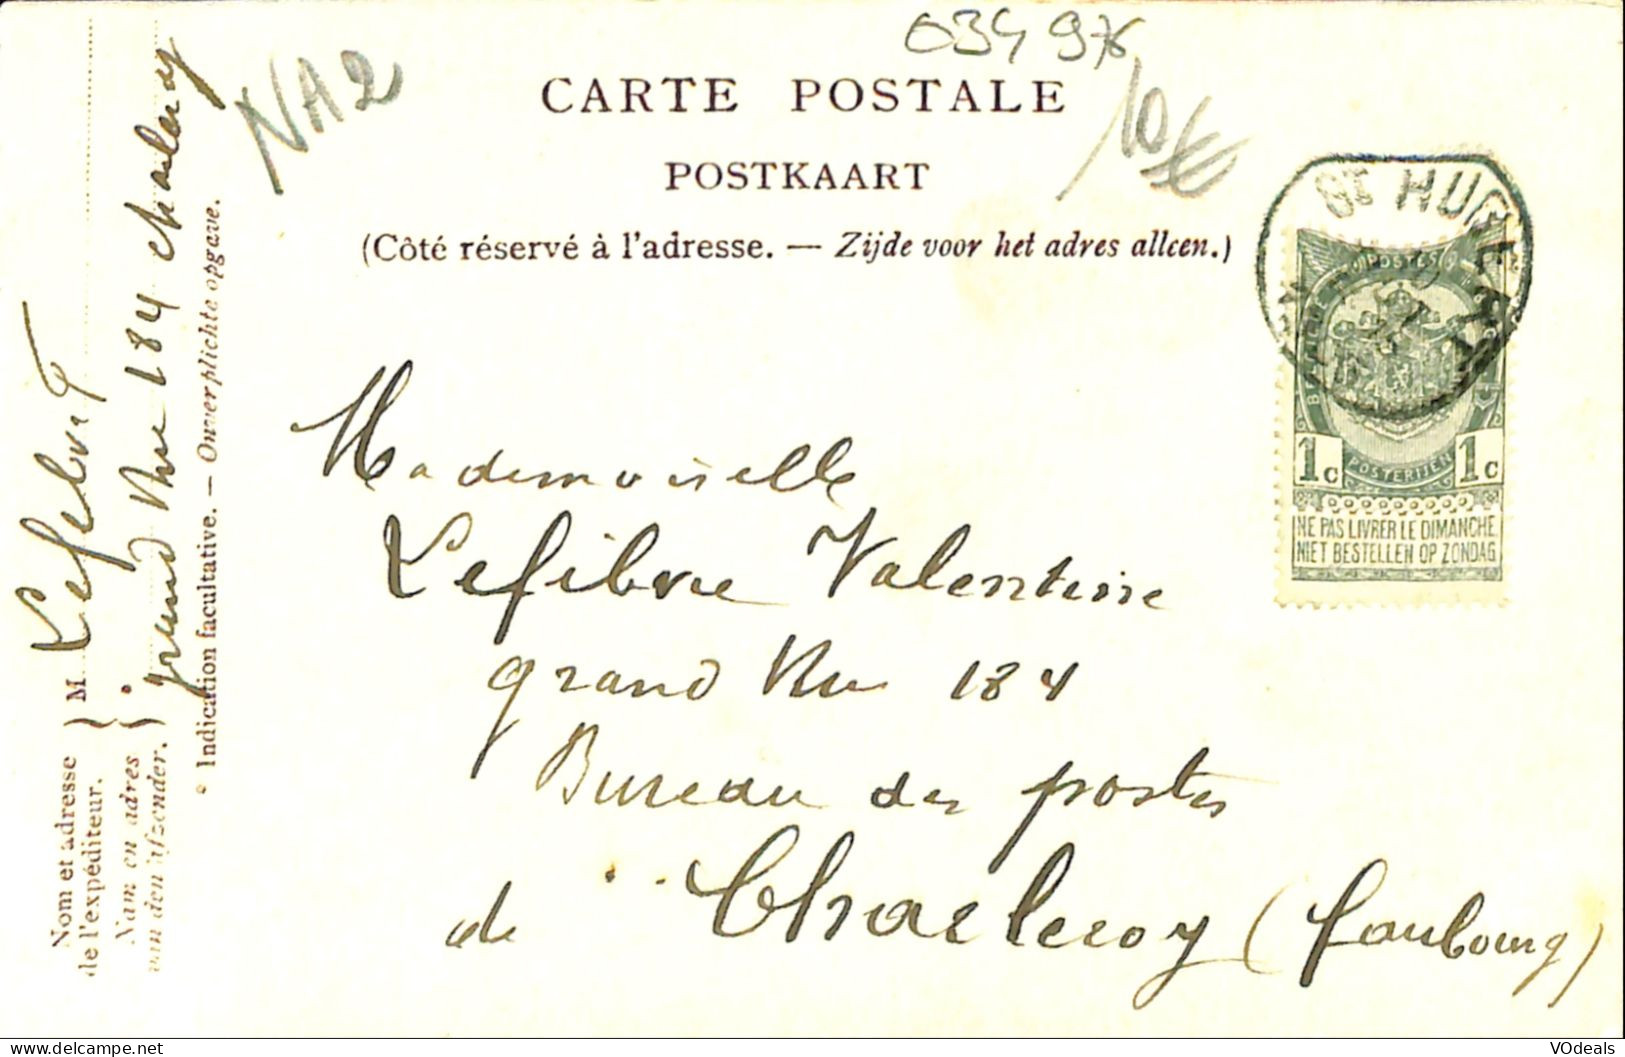 034 976
NA2
CARTE POSTALE
10€
POSTKAART
(Côté réservé à l'adresse. — Zijde voor het adres alleen.)
ST HUBERT
POSTES
1c 1c
POSTERIJEN
NE PAS LIVRER LE DIMANCHE
NIET BESTELLEN OP ZONDAG
Mademoiselle
Lefebvre Valentine
grand Rue 184
Bureau des postes
de Charleroy (faubourg)
Nom et adresse
de l'expéditeur.
Nam en adres
van den afzender.
M. Lefebvre
grand Rue 184 Charleroy
* Indication facultative. — Onverplichte opgave.
delcampe.net
VOdeals